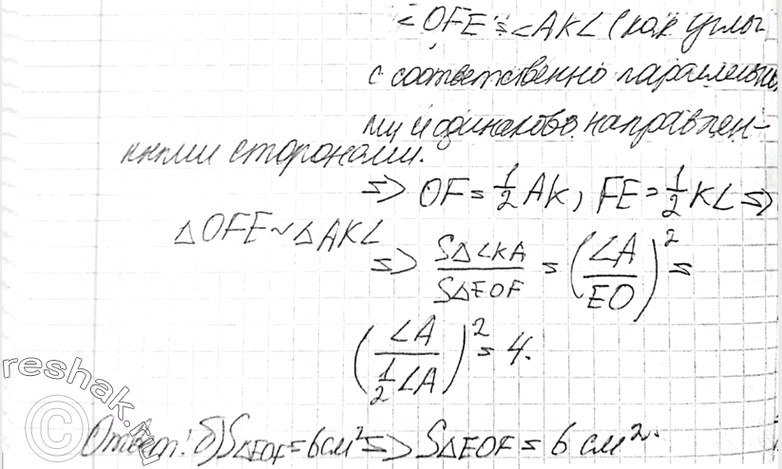 ∠OFE = ∠AKL (как углы
с соответственно параллельны
ми и одинаково направлен-
ными сторонами.
=> OF = 1/2 AK, FE = 1/2 KL =>
△OFE ~ △AKL
=> S△LKA / S△EOF = (LA / EO)² =
(LA / 1/2 LA)² = 4.
Ответ: б) S△EOF = 6 см² => S△EOF = 6 см².
reshak.ru